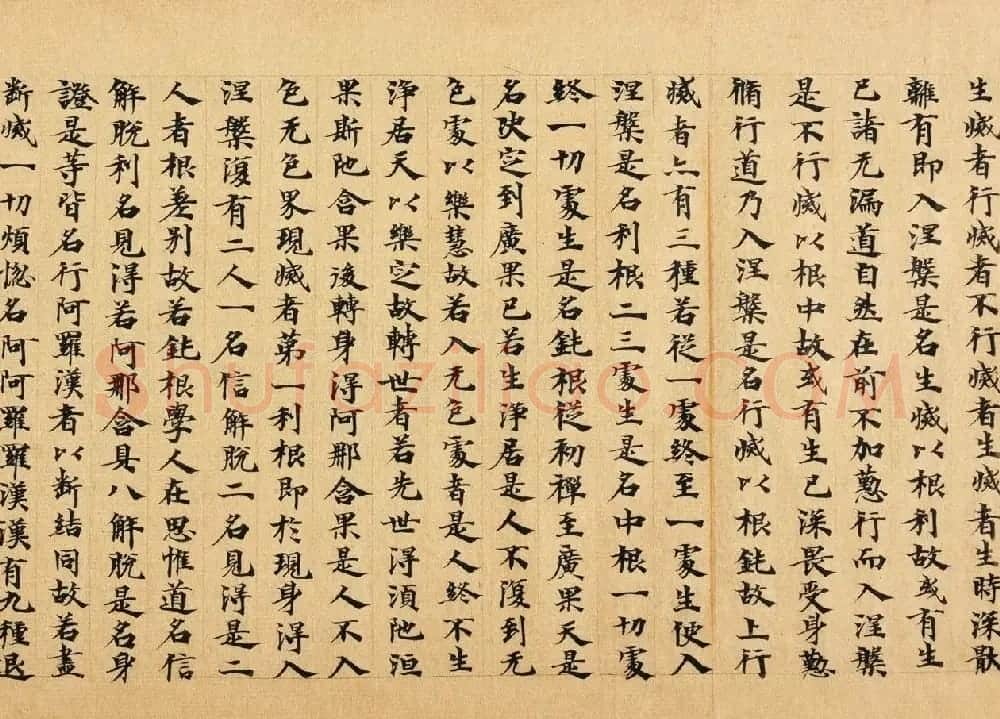 生滅者行滅者不行滅者生滅者生時深猒
離有即入涅槃是名生滅以根利故或有生
已諸无漏道自然在前不加懃行而入涅槃
是不行滅以根中故或有生已深畏受身懃
脩行道乃入涅槃是名行滅以根鈍故上行
滅者亦有三種若從一處終至一處生便入
涅槃是名利根二三處生是名中根一切處
終一切處生是名鈍根從初禪至廣果天是
名决定到廣果已若生淨居是人不復到无
色處以樂慧故若入无色處者是人終不生
淨居天以樂定故轉世者若先世得湏陁洹
果斯陁含果後轉身得阿那含果是人不入
色无色界現滅者第一利根即於現身得入
涅槃復有二人一名信解脫二名見得是二
人者根差別故若鈍根學人在思惟道名信
解脫利名見得若阿那含具八解脫是名身
證是等皆名行阿羅漢者以断結同故若盡
断滅一切煩惱名阿阿羅羅漢漢有九種退
Shufaziliao.COM